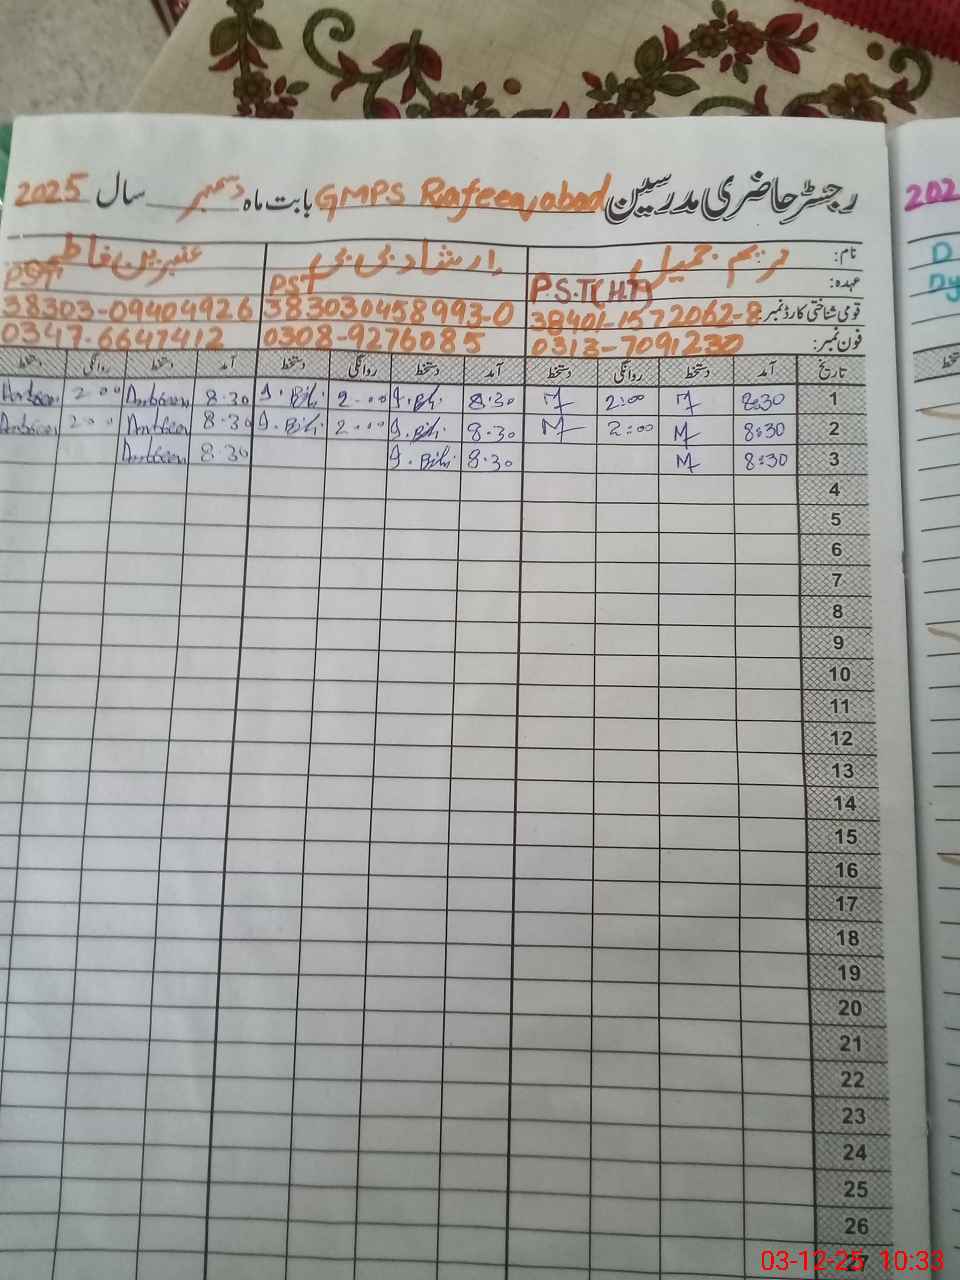 رجسٹر حاضری مدرسین GMPS Rafeeayabad بابت ماہ دسمبر سال 2025
نام: مریم جمیل ارشاد بی بی عنبرین فاطمہ
عہدہ: P.S.T(H.T) PST PST
قومی شناختی کارڈ نمبر 38401-1572062-8 383030458993-0 38303-09404926
فون نمبر: 0313-7091230 0308-9276085 0347-6647412
تاریخ آمد دستخط روانگی دستخط آمد دستخط روانگی دستخط آمد دستخط روانگی دستخط
1 8:30 M 2:00 M 8.30 I. Bibi 2.00 I. Bibi 8.30 Ambreen 2.00 Ambreen
2 8:30 M 2:00 M 8.30 I. Bibi 2.00 I. Bibi 8.30 Ambreen 2.00 Ambreen
3 8:30 M 8.30 I. Bibi 8.30 Ambreen
4
5
6
7
8
9
10
11
12
13
14
15
16
17
18
19
20
21
22
23
24
25
26
27
03-12-25 10:33
202